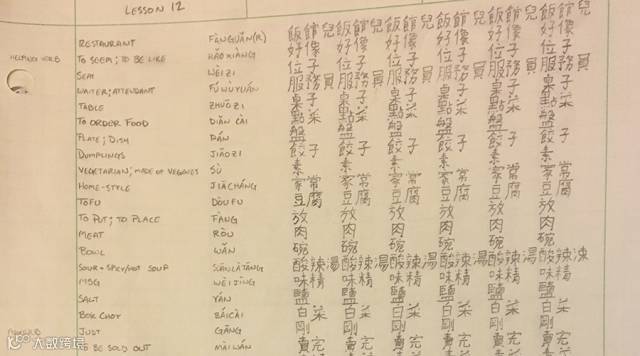 LESSON 12
RESTAURANT FÀNGUǍN(R) 飯館兒 飯館兒 飯館兒 飯館兒 飯館兒 飯館兒
HELPING VERB TO SEEM; TO BE LIKE HǍO XIÀNG 好像 好像 好像 好像 好像 好像
SEAT WÈIZI 位子 位子 位子 位子 位子 位子
WAITER; ATTENDANT FÚWÙYUÁN 服務員 服務員 服務員 服務員 服務員 服務員
TABLE ZHUŌZI 桌子 桌子 桌子 桌子 桌子 桌子
TO ORDER FOOD DIǍN CÀI 點菜 點菜 點菜 點菜 點菜 點菜
PLATE; DISH PÁN 盤 盤 盤 盤 盤 盤
DUMPLINGS JIǍOZI 餃子 餃子 餃子 餃子 餃子 餃子
VEGETARIAN; MADE OF VEGGIES SÙ 素 素 素 素 素 素
HOME-STYLE JIĀCHÁNG 家常 家常 家常 家常 家常 家常
TOFU DÒUFU 豆腐 豆腐 豆腐 豆腐 豆腐 豆腐
TO PUT; TO PLACE FÀNG 放 放 放 放 放 放
MEAT RÒU 肉 肉 肉 肉 肉 肉
BOWL WǍN 碗 碗 碗 碗 碗 碗
SOUR + SPICY/HOT SOUP SUĀNLÀTĀNG 酸辣湯 酸辣湯 酸辣湯 酸辣湯 酸辣湯 酸辣
MSG WÈIJĪNG 味精 味精 味精 味精 味精 味精
SALT YÁN 鹽 鹽 鹽 鹽 鹽 鹽
BOK CHOY BÁICÀI 白菜 白菜 白菜 白菜 白菜 白菜
JUST GĀNG 剛 剛 剛 剛 剛 剛
BE SOLD OUT MÀI WÁN 賣完 賣完 賣完 賣完 賣完 賣完
大数跨境